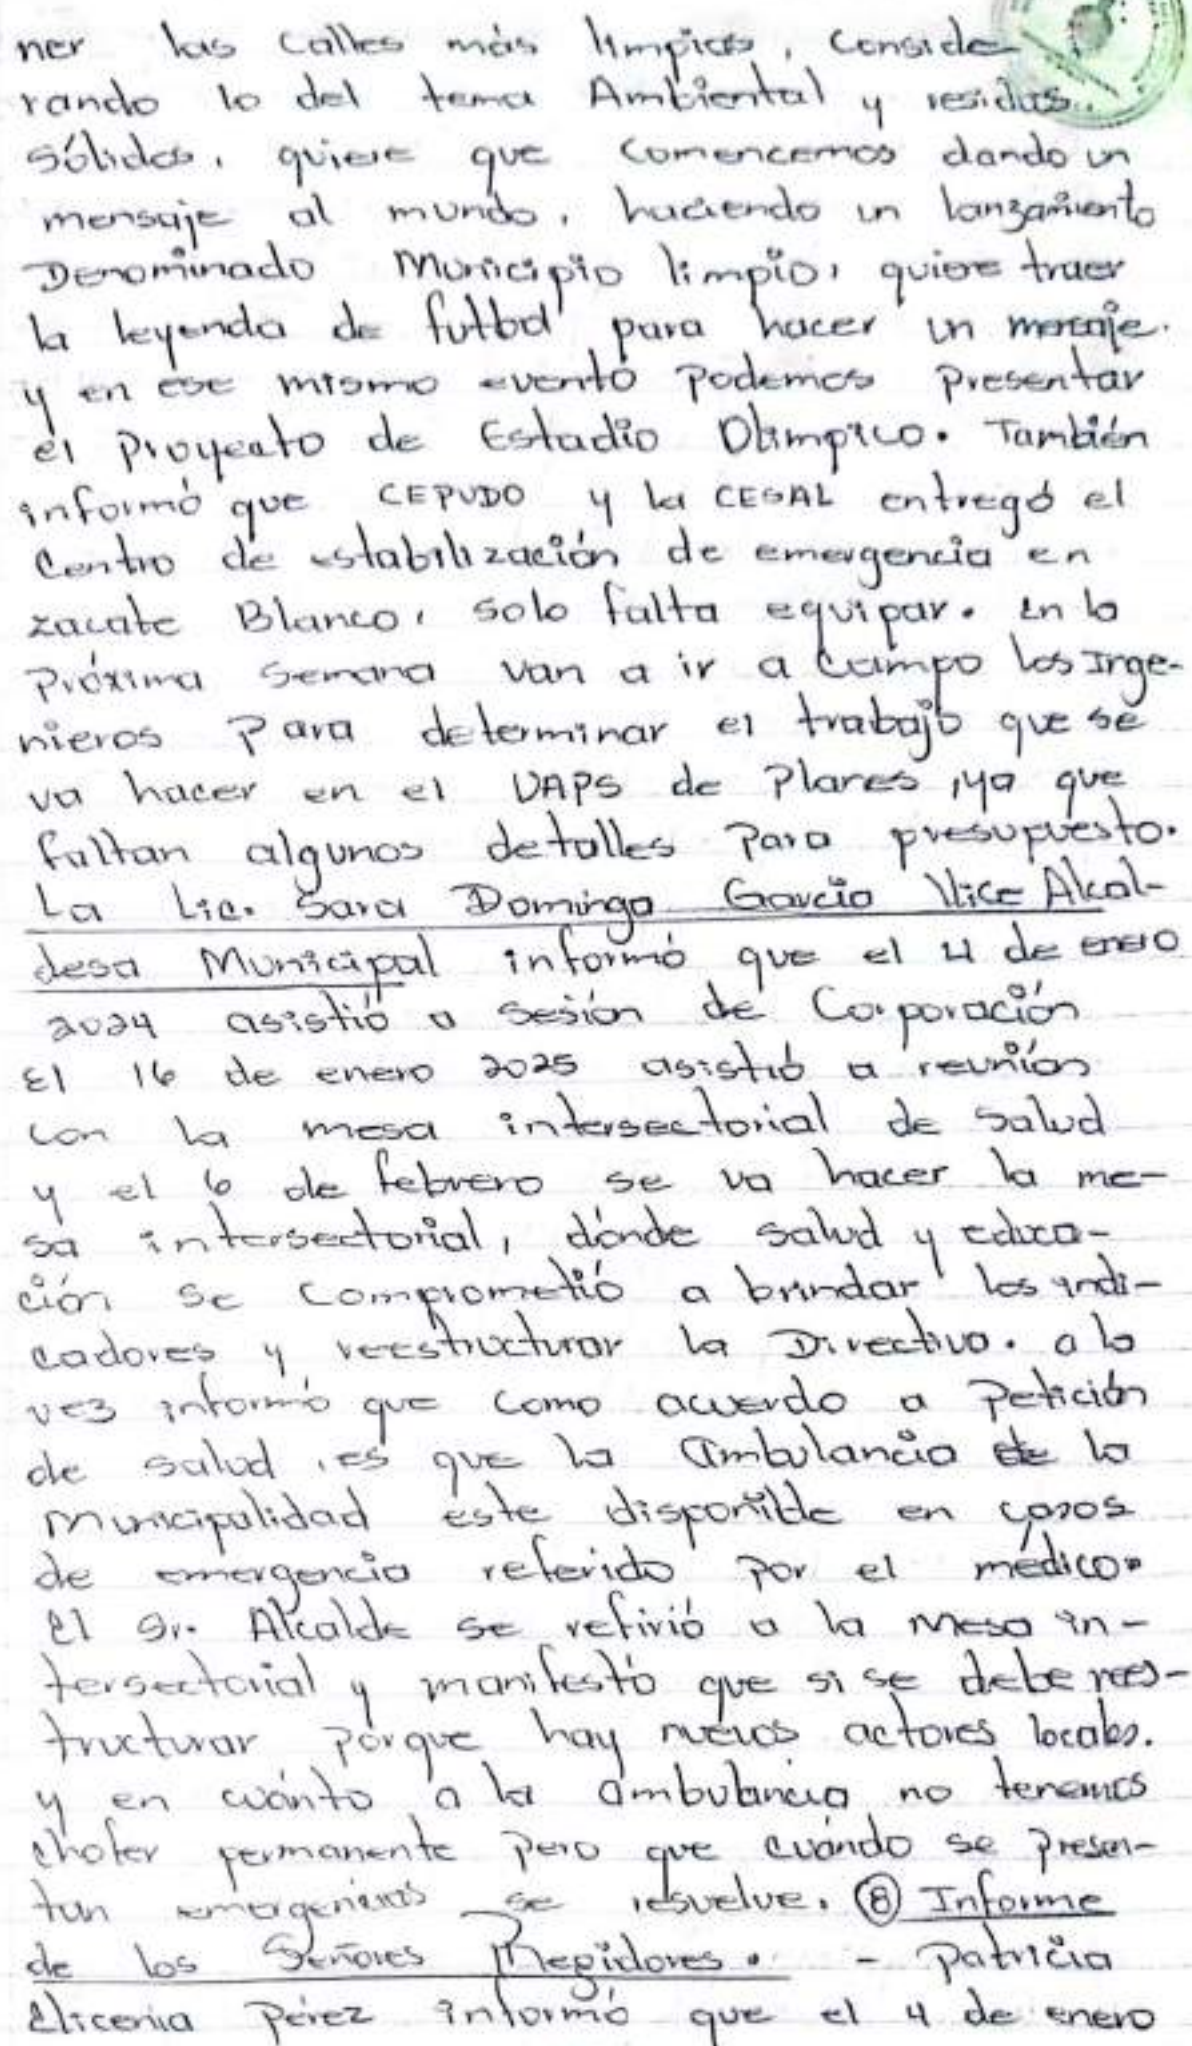 ner las calles más limpias, conside
rando lo del tema Ambiental y residuos
sólidos, quiere que comencemos dando un
mensaje al mundo, haciendo un lanzamiento
Denominado Municipio limpio, quiere traer
la leyenda de futbol para hacer un mensaje.
y en ese mismo evento podemos presentar
el Proyecto de Estadio Olimpico. También
informó que CEPUDO y la CESAL entregó el
Centro de estabilización de emergencia en
zacate Blanco, solo falta equipar. En la
Próxima semana van a ir a campo los Inge-
nieros Para determinar el trabajo que se
va hacer en el UAPS de Planes, ya que
faltan algunos detalles Para presupuesto.
La Lic. Sara Domingo García Vice Alcal-
desa Municipal informó que el 4 de enero
2024 asistió a sesión de Corporación
El 16 de enero 2025 asistió a reunión
con la mesa intersectorial de Salud
y el 6 de febrero se va hacer la me-
sa intersectorial, dónde salud y educa-
ción se comprometió a brindar los indi-
cadores y reestructurar la Directiva. a la
vez informó que como acuerdo a Petición
de salud, es que la Ambulancia de la
Municipalidad este disponible en casos
de emergencia referido por el médico.
El Sr. Alcalde se refirió a la Mesa in-
tersectorial y manifestó que si se debe rees-
tructurar pórque hay nuevos actores locales.
y en cuánto a la ambulancia no tenemos
chofer permanente pero que cuándo se presen-
tan emergencias se resuelve. ⑧ Informe
de los Señores Regidores. - Patricia
Elicenia Pérez informó que el 4 de enero